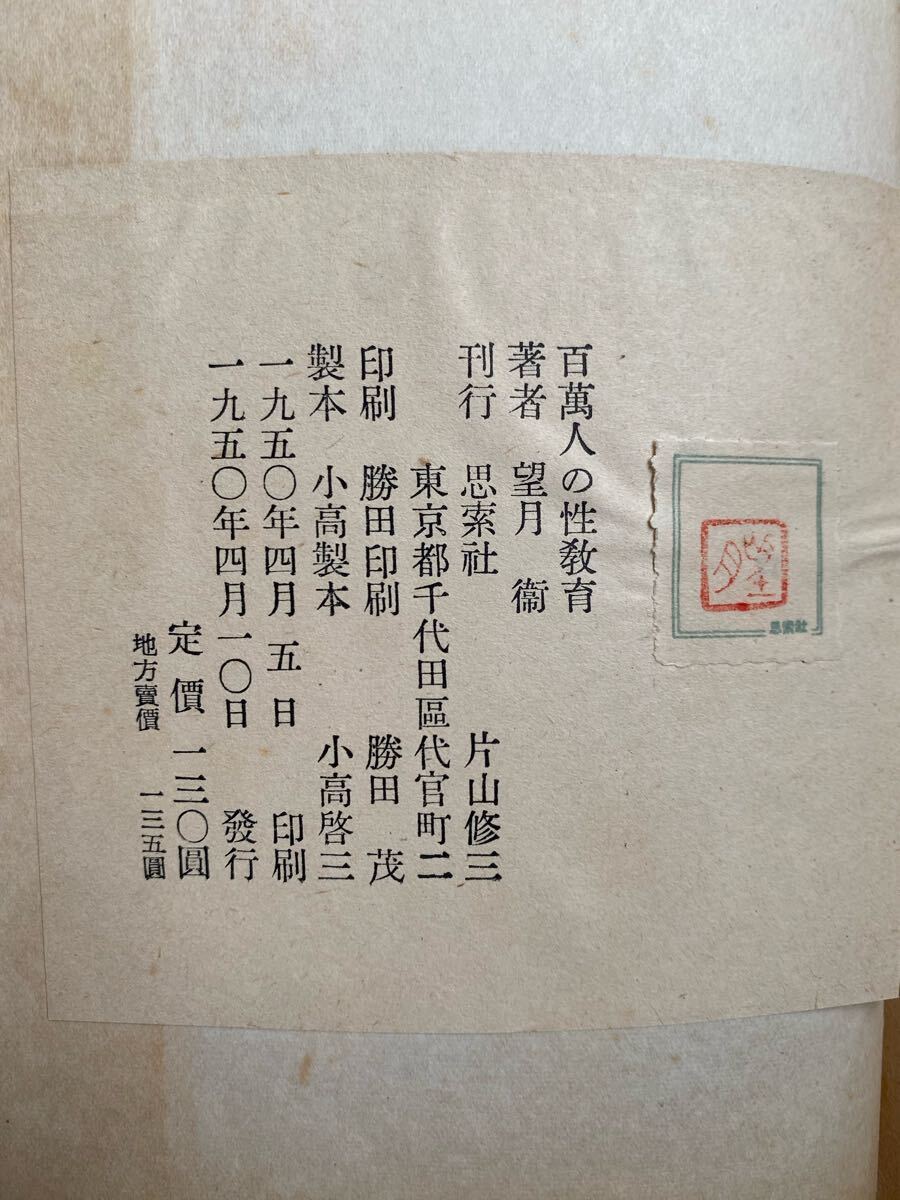 百萬人の性敎育
著者 望月 衞
刊行 思索社 片山修三
東京都千代田區代官町二
印刷 勝田印刷 勝田 茂
製本 小高製本 小高啓三
一九五〇年四月 五日 印刷
一九五〇年四月一〇日 發行
定價 一三〇圓
地方賣價 一三五圓
思索社
望月